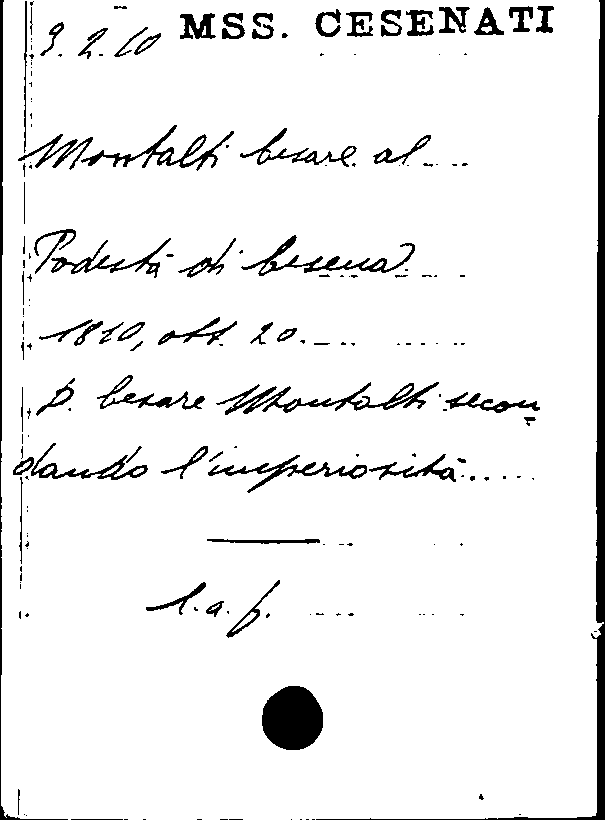 MSS. CESENATI
9.2.10
Montalti Cesare al
Podestà di Cesena
1810, ott. 20.
D. Cesare Montalti secon
dando l'imperiosità.....
l.a.f.